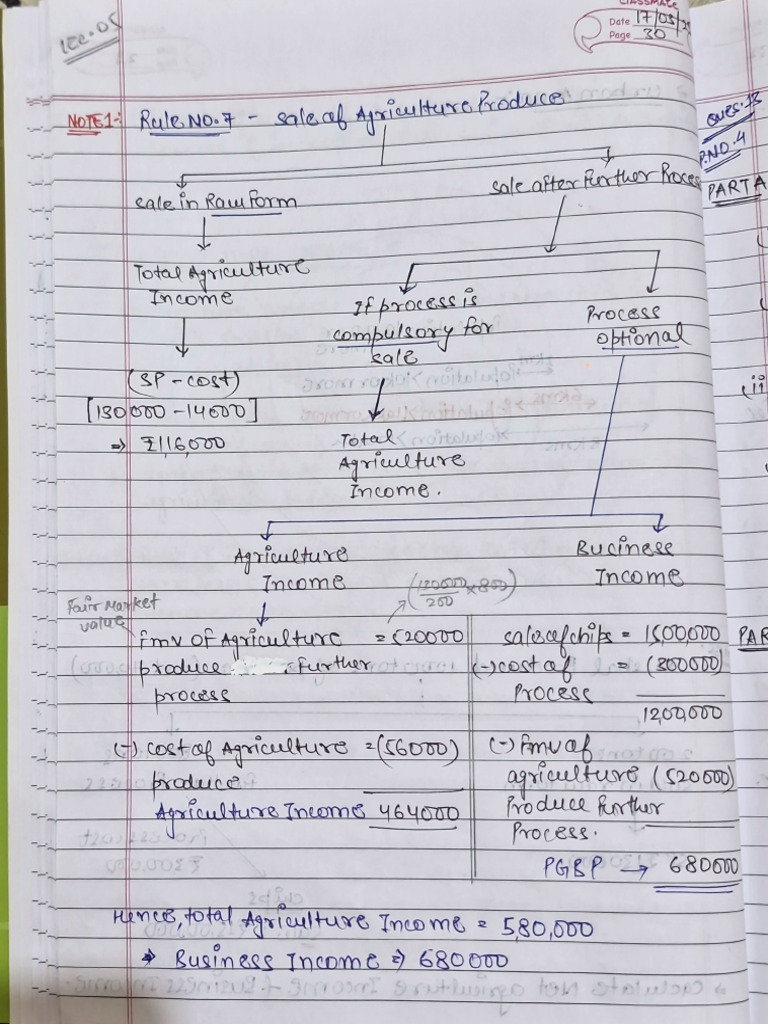 Lec-05
CLASSMATE
Date 17/05/2
Page 30
NOTE1:- Rule NO.7 - Sale of Agriculture Produce
Sale in Raw form
Sale after Further Process
Total Agriculture
Income
(SP-cost)
[130000-14000]
⇒ ₹1,16,000
If process is
compulsory for
sale
Total
Agriculture
Income.
Process
Optional
Agriculture
Income
Buciness
Income
Fair Market
value
fmv of Agriculture = 520000
produce further
process
(-) cost of Agriculture = (56000)
produce
Agriculture Income 464000
sales of chips = 1500,000
(-) cost of = (300000)
Process
1200,000
(-) fmv of
agriculture (520000)
Produce Further
Process.
PGBP → 680000
Hence, total Agriculture Income = 5,80,000
→ Business Income ⇒ 680000
Ques.13
P.NO.4
PART A
(ii
PAR